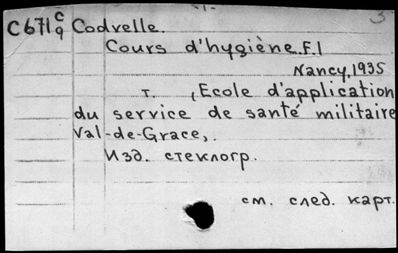 -1-
3
C671 c/9 Codvelle.
Cours d'hygiène. F.I
Nancy, 1935
т. , Ecole d'application
du service de santé militaire
Val-de-Grace,.
Изд. стеклогр.
см. след. карт.